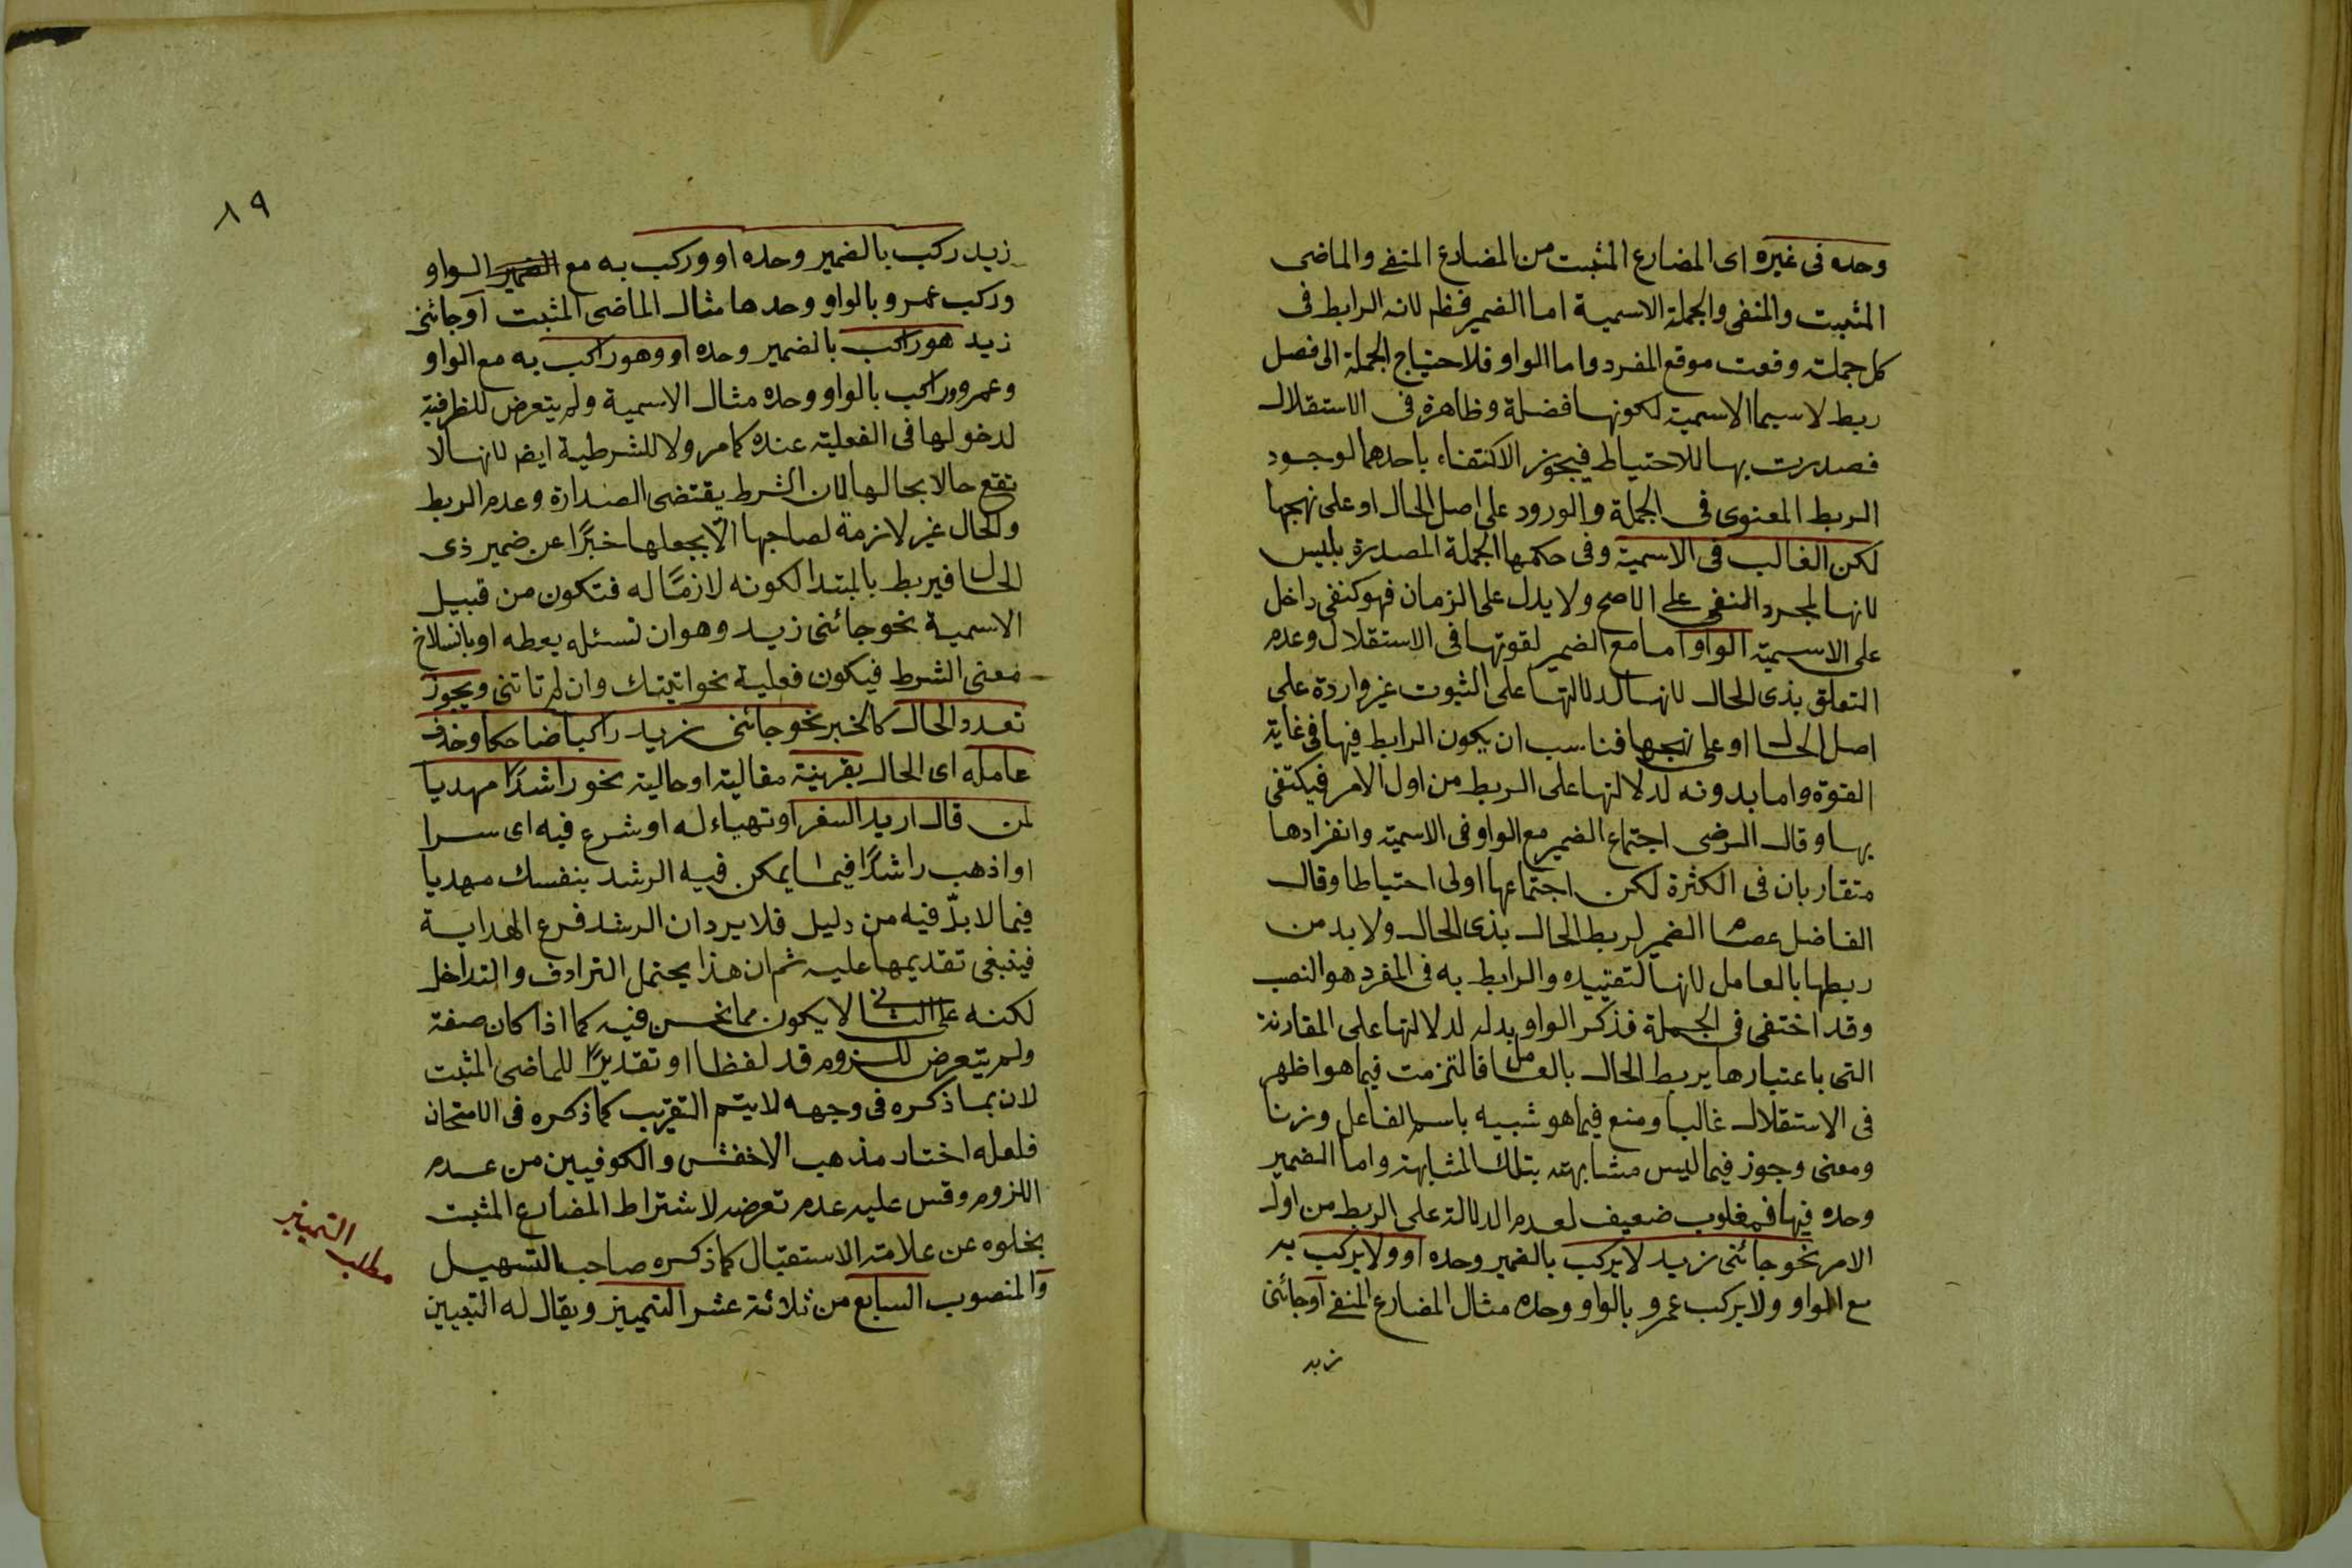 وحده فى غيره اى المضارع المثبت من المضارع المنفى والماضى
المثبت والمنفى والجملة الاسمية اما الضمير فظ لانه الرابط فى
كل جملة وقعت موقع المفرد واما الواو فلاحتياج الجملة الى فصل
ربط لاسيما الاسمية لكونها فضلة وظاهرة فى الاستقلال
فصدرت بها للاحتياط فيجوز الاكتفاء باحدهما لوجود
الربط المعنوى فى الجملة والورود على اصل الحال او على نهجها
لكن الغالب فى الاسمية وفى حكمها الجملة المصدرة بليس
لانها لمجرد النفى على الاصح ولا يدل على الزمان فهو كنفى داخل
على الاسمية الواو اما مع الضمير لقوتها فى الاستقلال وعدم
التعلق بذى الحال لانها لدلالتها على الثبوت غير واردة على
اصل الحال او على نهجها فناسب ان يكون الرابط فيها فى غاية
القوة واما بدونه لدلالتها على الربط من اول الامر فيكتفى
بها وقال الرضى اجتماع الضمير مع الواو فى الاسمية وانفرادها
متقاربان فى الكثرة لكن اجتماعها اولى احتياطا وقال
الفاضل عصام الضمير لربط الحال بذى الحال ولا بد من
ربطها بالعامل لانها لتقييده والرابط به فى المفرد هو النصب
وقد اختفى فى الجملة فذكر الواو بدله لدلالتها على المقارنة
التى باعتبارها يربط الحال بالعامل فالتزمت فيما هو اظهر
فى الاستقلال غالبا ومنع فيما هو شبيه باسم الفاعل وزنا
ومعنى وجوز فيما ليس مشابهته بتلك المشابهة واما الضمير
وحده فيها فمغلوب ضعيف لعدم الدلالة على الربط من اول
الامر نحو جائنى زيد لا يركب بالضمير وحده او ولا يركب به
مع الواو ولا يركب عمرو بالواو وحده مثال المضارع المنفى اوجائنى
زيد
٨٩
زيد ركب بالضمير وحده او وركب به مع الضمير الواو
وركب عمرو بالواو وحدها مثال الماضى المثبت اوجائنى
زيد هو راكب بالضمير وحده او وهو راكب به مع الواو
وعمرو راكب بالواو وحده مثال الاسمية ولم يتعرض للظرفية
لدخولها فى الفعلية عنده كما مر ولا للشرطية ايضا لانها لا
تقع حالا بحالها لان الشرط يقتضى الصدارة وعدم الربط
والحال غير لازمة لصاحبها الا بجعلها خبرًا عن ضمير ذى
الحال فيربط بالمبتدا لكونه لازمًا له فتكون من قبيل
الاسمية نحو جائنى زيد وهو ان تسئله يعطه او بانسلاخ
معنى الشرط فيكون فعلية نحو اتيتك وان لم تاتنى ويجوز
تعدد الحال كالخبر نحو جائنى زيد راكبا ضاحكا وحذف
عامله اى الحال بقرينة مقالية او حالية نحو راشدًا مهديا
لمن قال اريد السفر او تهياء له او شرع فيه اى سر
او اذهب راشدًا فيما يمكن فيه الرشد بنفسك مهديا
فيما لا بدّ فيه من دليل فلا يرد ان الرشد فرع الهداية
فينبغى تقديمها عليه ثم ان هذا يحتمل الترادف والتداخل
لكنه على الثانى لا يكون مما نحن فيه كما اذا كان صفة
ولم يتعرض للزوم قد لفظا او تقديرًا للماضى المثبت
لان بما ذكره فى وجهه لا يتم التقريب كما ذكره فى الامتحان
فلعله اختار مذهب الاخفش والكوفيين من عدم
اللزوم وقس عليه عدم تعرضه لاشتراط المضارع المثبت
بخلوه عن علامة الاستقبال كما ذكره صاحب التسهيل
والمنصوب السابع من ثلاثة عشر التمييز ويقال له التبيين
مطلب التمييز